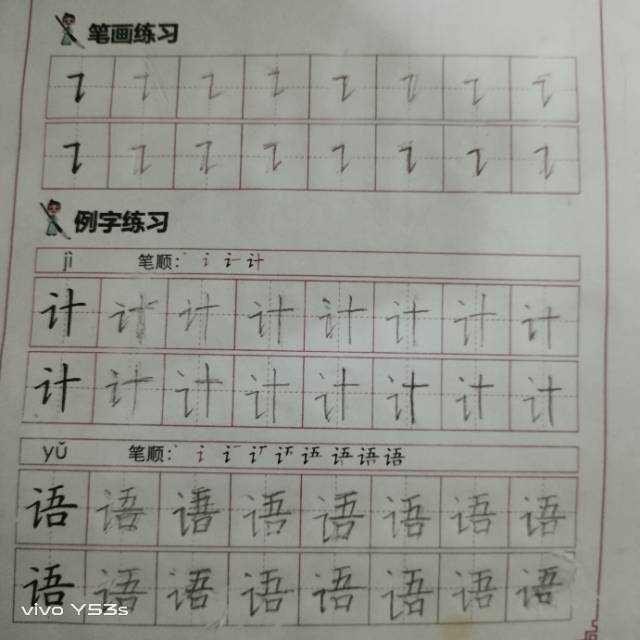 笔画练习
㇊ ㇊ ㇊ ㇊ ㇊ ㇊ ㇊ ㇊
㇊ ㇊ ㇊ ㇊ ㇊ ㇊ ㇊ ㇊
例字练习
jì 笔顺: 丶 讠 计
计 计 计 计 计 计 计 计
计 计 计 计 计 计 计 计
yǔ 笔顺: 语 语 语
语 语 语 语 语 语 语 语
语 语 语 语 语 语 语 语
vivo Y53s